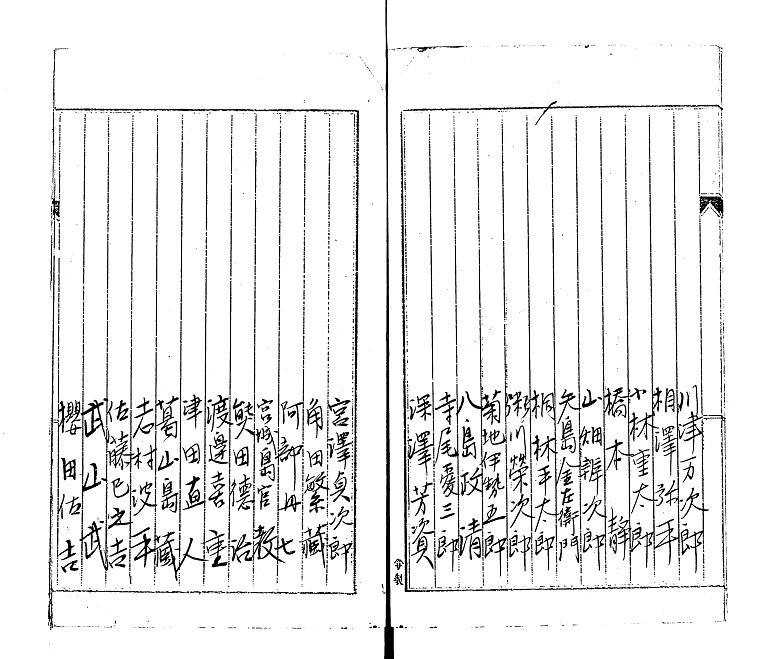 川津万次郎
相澤弥平
小林重太郎
橋本 静
山畑辨次郎
矢島金左衛門
桐林平太郎
瀬川榮次郎
菊地伊勢五郎
八島政清
寺尾愛三郎
深澤芳資
宮澤貞次郎
角田繁藏
阿部丹七
宮城島官教
熊田德治
渡邉喜重
津田直人
葛山島藏
志村波平
佐藤巳之吉
武山武
櫻田佐吉